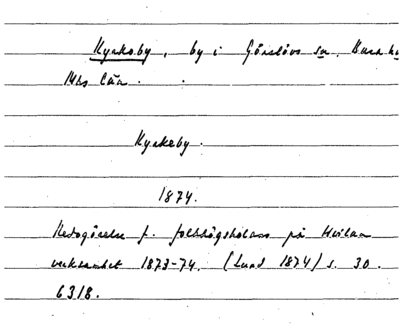 Kyrkoby, by i Görslövs sn. Bara hd
Mhs län.
Kyrkeby.
1874.
Redogörelse f. folkhögskolans på Hvilan
verksamhet 1873-74. (Lund 1874) s. 30.
6318.